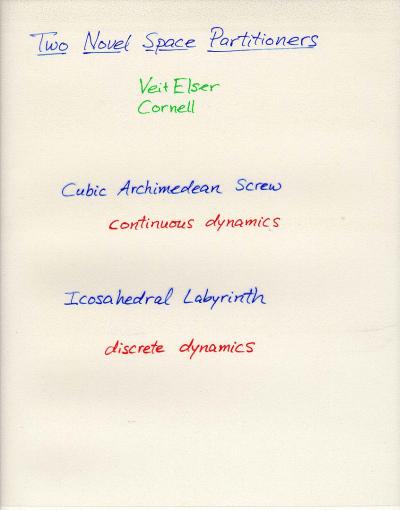 Two Novel Space Partitioners
Veit Elser
Cornell
Cubic Archimedean Screw
continuous dynamics
Icosahedral Labyrinth
discrete dynamics